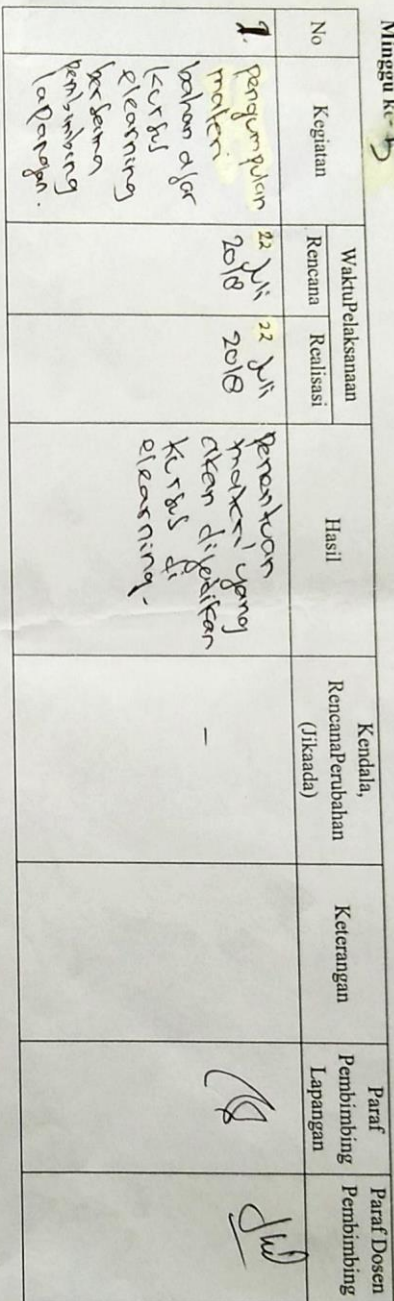 Minggu ke- 5
No
Kegiatan
WaktuPelaksanaan
Rencana
Realisasi
Hasil
Kendala,
RencanaPerubahan
(Jikaada)
Keterangan
Paraf
Pembimbing
Lapangan
Paraf Dosen
Pembimbing
1.
pengumpulan
materi
bahan ajar
kursus
elearning
bersama
pembimbing
lapangan.
22 Juli
2018
22 Juli
2018
Penentuan
materi yang
akan dijadikan
kursus di
elearning.
-